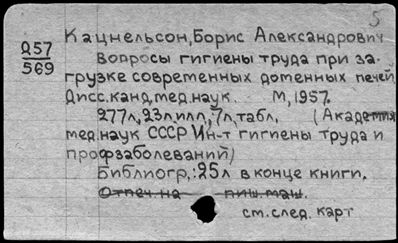 5
Кацнельсон, Борис Александрович
Д57
569
Вопросы гигиены труда при за-
грузке современных доменных печей.
Дисс.канд.мед.наук. М,1957.
277л,23л.илл,7л,табл. (Академия
мед.наук СССР Ин-т гигиены труда и
профзаболеваний)
Библиогр.:25л в конце книги.
Отпеч.на пиш.маш.
см.след. карт